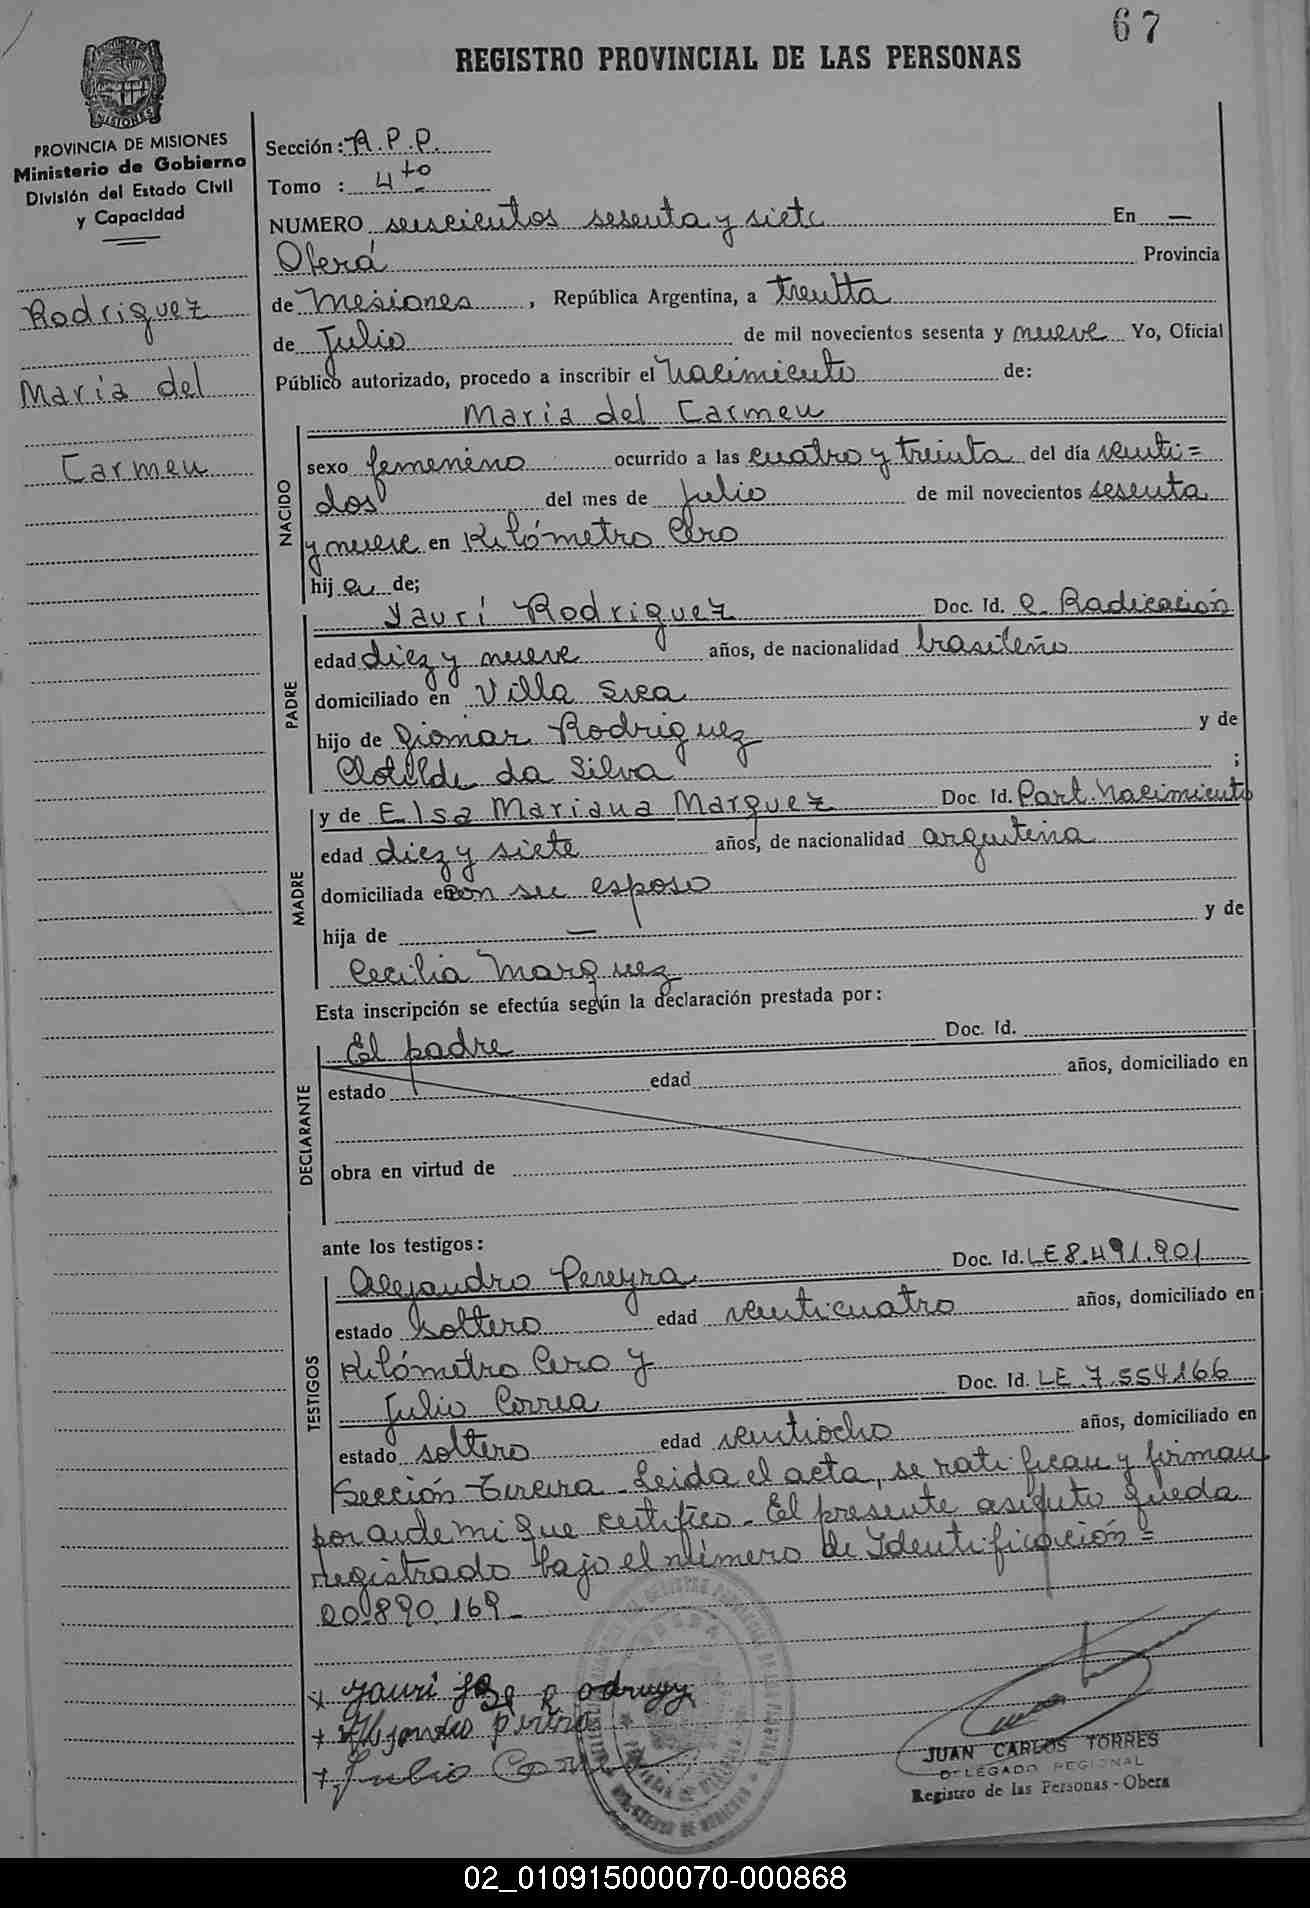 67
REGISTRO PROVINCIAL DE LAS PERSONAS
MISIONES
PROVINCIA DE MISIONES
Ministerio de Gobierno
División del Estado Civil
y Capacidad
Rodriguez
Maria del
Carmen
Sección: A.P.P.
Tomo : 4to
NUMERO seiscientos sesenta y siete En —
Oberá Provincia
de Misiones, República Argentina, a treinta
de Julio de mil novecientos sesenta y nueve Yo, Oficial
Público autorizado, procedo a inscribir el Nacimiento de:
Maria del Carmen
NACIDO
sexo femenino ocurrido a las cuatro y treinta del día venti=
dos del mes de Julio de mil novecientos sesenta
y nueve en Kilómetro Cero
hija de;
PADRE
Yaurí Rodriguez Doc. Id. C. Radicación
edad diez y nueve años, de nacionalidad brasileño
domiciliado en Villa Svea
hijo de Giomar Rodriguez y de
Clotilde da Silva ;
MADRE
y de Elsa Mariana Marquez Doc. Id. Part. Nacimiento
edad diez y siete años, de nacionalidad argentina
domiciliada en con su esposo
hija de — y de
Cecilia Marquez
Esta inscripción se efectúa según la declaración prestada por:
DECLARANTE
El padre Doc. Id.
estado edad años, domiciliado en
obra en virtud de
ante los testigos:
TESTIGOS
Alejandro Pereyra Doc. Id. LE 8.491.901
estado soltero edad venticuatro años, domiciliado en
Kilómetro Cero y
Julio Correa Doc. Id. LE 7.554166
estado soltero edad ventiocho años, domiciliado en
Sección Tercera. Leida el acta, se ratifican y firman
por ante mi que certifico. El presente asiento queda
registrado bajo el número de Identificación=
20.890.169_
x Yauri Jose Rodriguez
+ Alejandro
+ Julio Correa
JUAN CARLOS TORRES
DELEGADO REGIONAL
Registro de las Personas - Obera
02_010915000070-000868